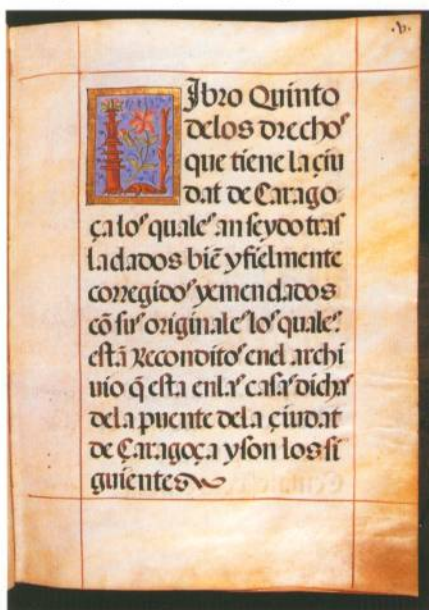 .v.
LIbro Quinto
delos drechos
que tiene la çiu
dat de Carago
ça los quales an seydo tras
ladados biē y fielmente
corregidos y emendados
cō sus originales los quales
estā Reconditos enel archi
uio q̄ esta enlas casas dichas
dela puente dela çiudat
de Caragoça y son los si
guientes